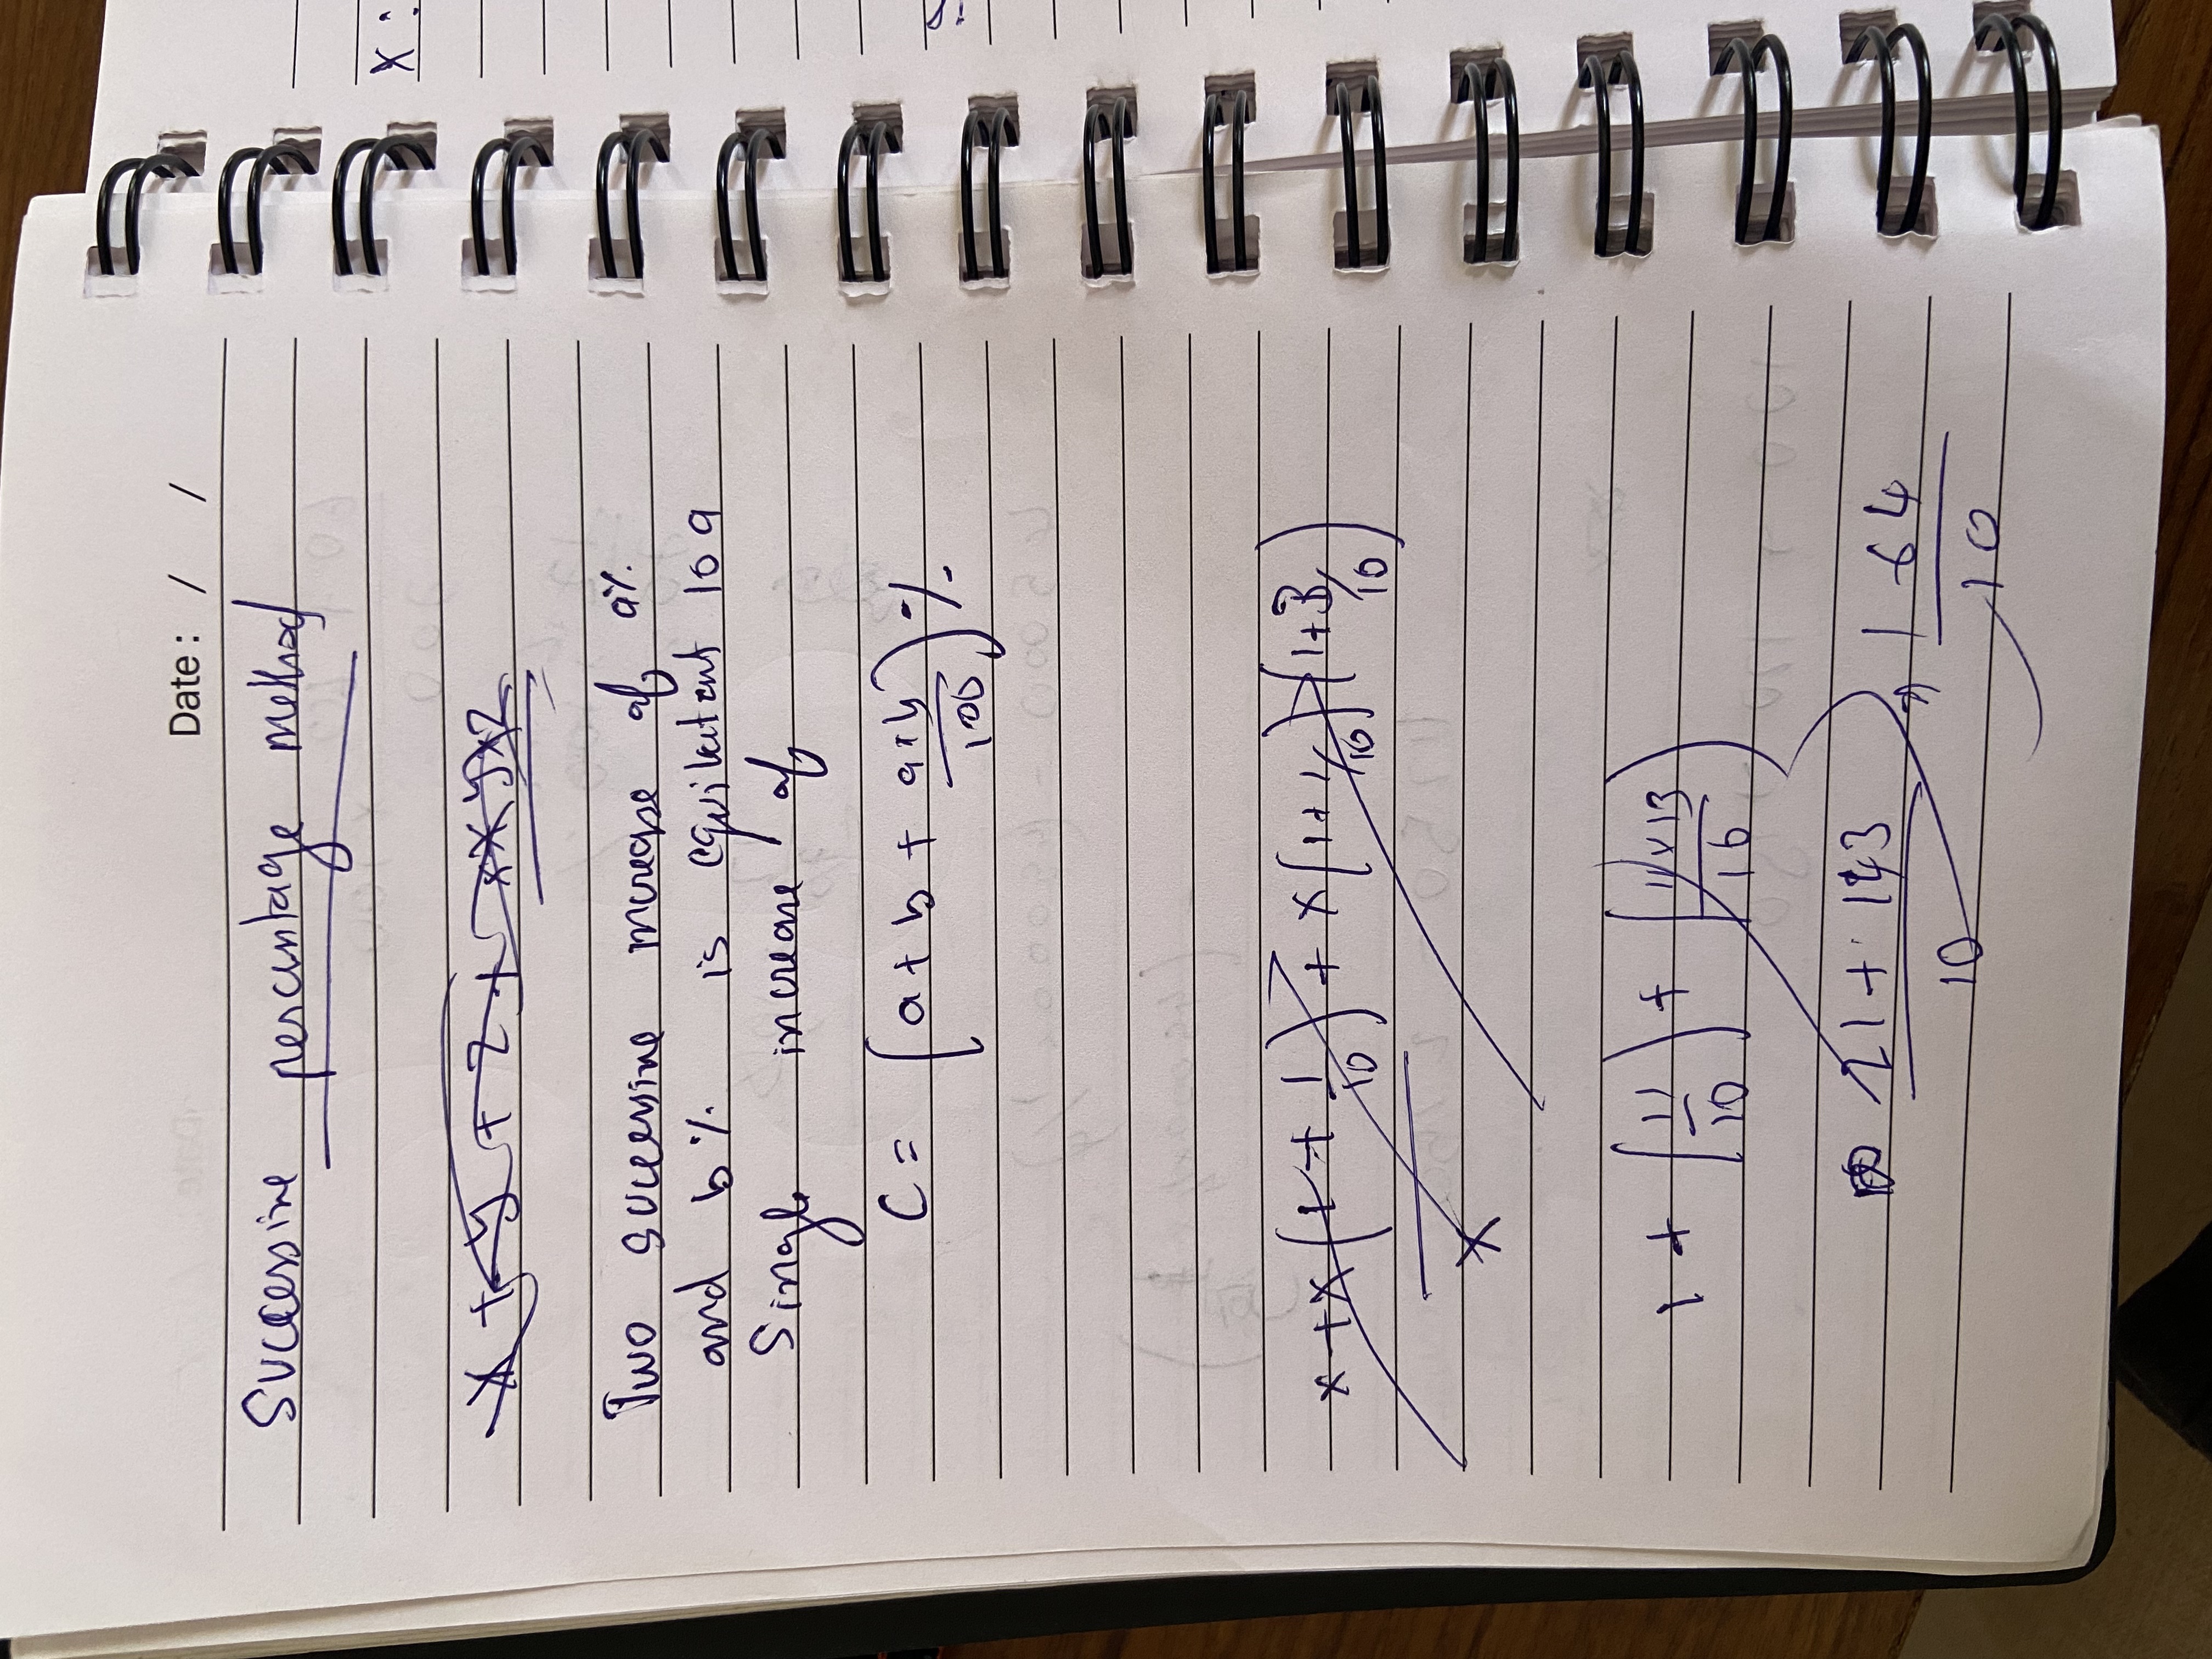 Date : / /
Successive percentage method
x + y + z + x x y x z
Two successive increase of a%
and b% is equilatent to a
Single increase of
C = (a + b + a x b / 100) %
x + x (1 + 1/10) + x (1 + 1/10) (1 + 3/10)
x
1 + (11/10) + (11 x 13 / 10)
21 + 143 / 10 → 164 / 10
x :